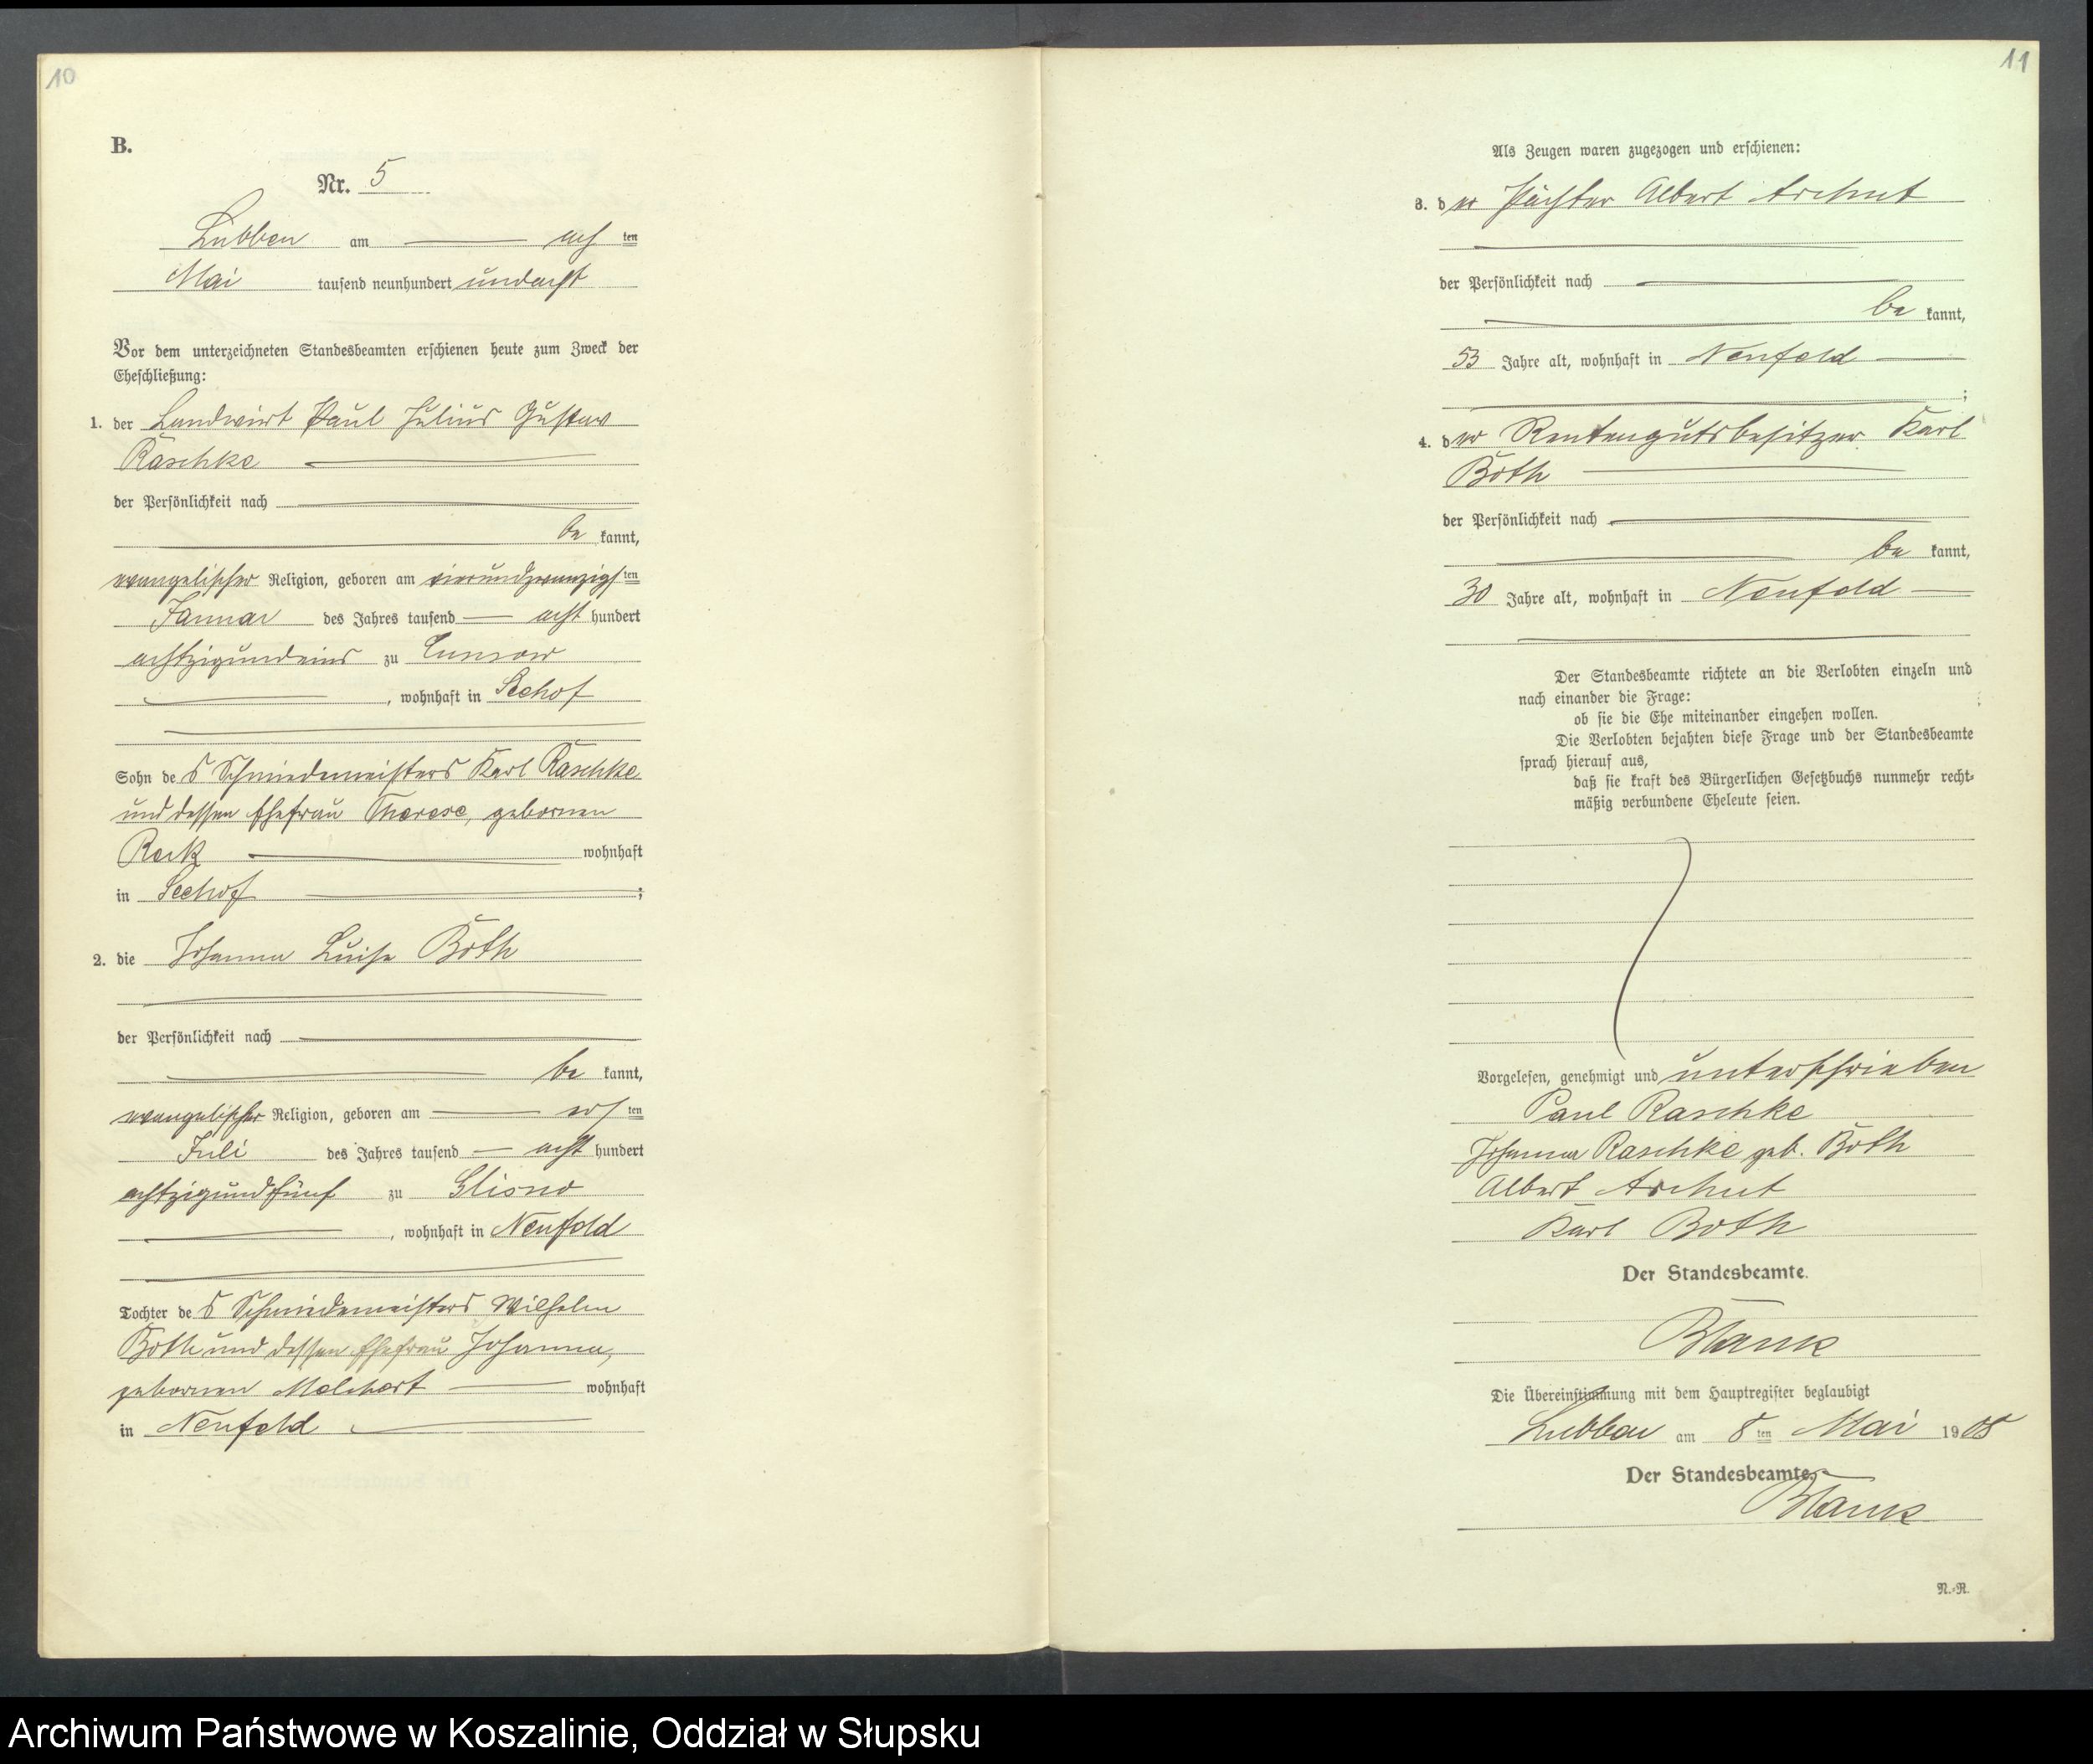 10
B.
Nr. 5
Lübben am ach ten
Mai tausend neunhundert undacht
Vor dem unterzeichneten Standesbeamten erschienen heute zum Zweck der
Eheschließung:
1. der Landwirt Paul Julius Gustav
Raschke
der Persönlichkeit nach
be kannt,
evangelischer Religion, geboren am vierundzwanzigsten
Januar des Jahres tausend acht hundert
achtzigundeins zu
, wohnhaft in Seehof
Sohn des Schmiedemeisters Karl Raschke
und dessen Ehefrau Therese, gebornen
wohnhaft
in Seehof ;
2. die Johanna Luise Both
der Persönlichkeit nach
be kannt,
evangelischer Religion, geboren am ersten
Juli des Jahres tausend acht hundert
achtzigundfünf zu Glisno
, wohnhaft in Neufeld
Tochter des Schmiedemeisters Wilhelm
Both und dessen Ehefrau Johanna,
gebornen Melchert wohnhaft
in Neufeld
11
Als Zeugen waren zugezogen und erschienen:
3. der Pächter Albert Archut
der Persönlichkeit nach
be kannt,
53 Jahre alt, wohnhaft in Neufeld
;
4. der Rentengutsbesitzer Karl
Both
der Persönlichkeit nach
be kannt,
30 Jahre alt, wohnhaft in Neufeld
Der Standesbeamte richtete an die Verlobten einzeln und
nach einander die Frage:
ob sie die Ehe miteinander eingehen wollen.
Die Verlobten bejahten diese Frage und der Standesbeamte
sprach hierauf aus,
daß sie kraft des Bürgerlichen Gesetzbuchs nunmehr recht-
mäßig verbundene Eheleute seien.
Vorgelesen, genehmigt und unterschrieben
Paul Raschke
Johanna Raschke geb. Both
Albert Archut
Karl Both
Der Standesbeamte.
Blank
Die Übereinstimmung mit dem Hauptregister beglaubigt
Lübben am 8 ten Mai 1908
Der Standesbeamte.
Blank
N.-R.
Archiwum Państwowe w Koszalinie, Oddział w Słupsku